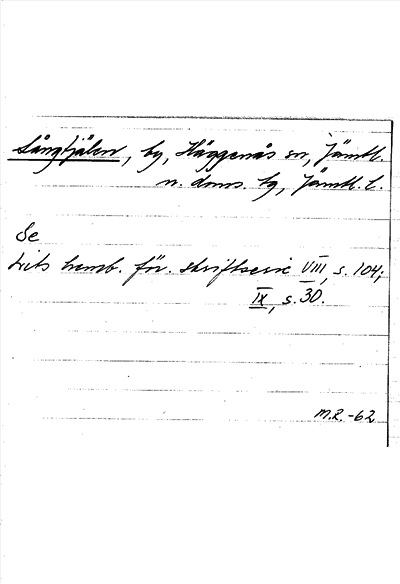 Långtjälen, by, Häggenås sn, Jämtl.
n. doms. tg, Jämtl. l.
Se
hemb. för. skriftserie VIII, s. 104;
IX, s. 30.
M.R. -62